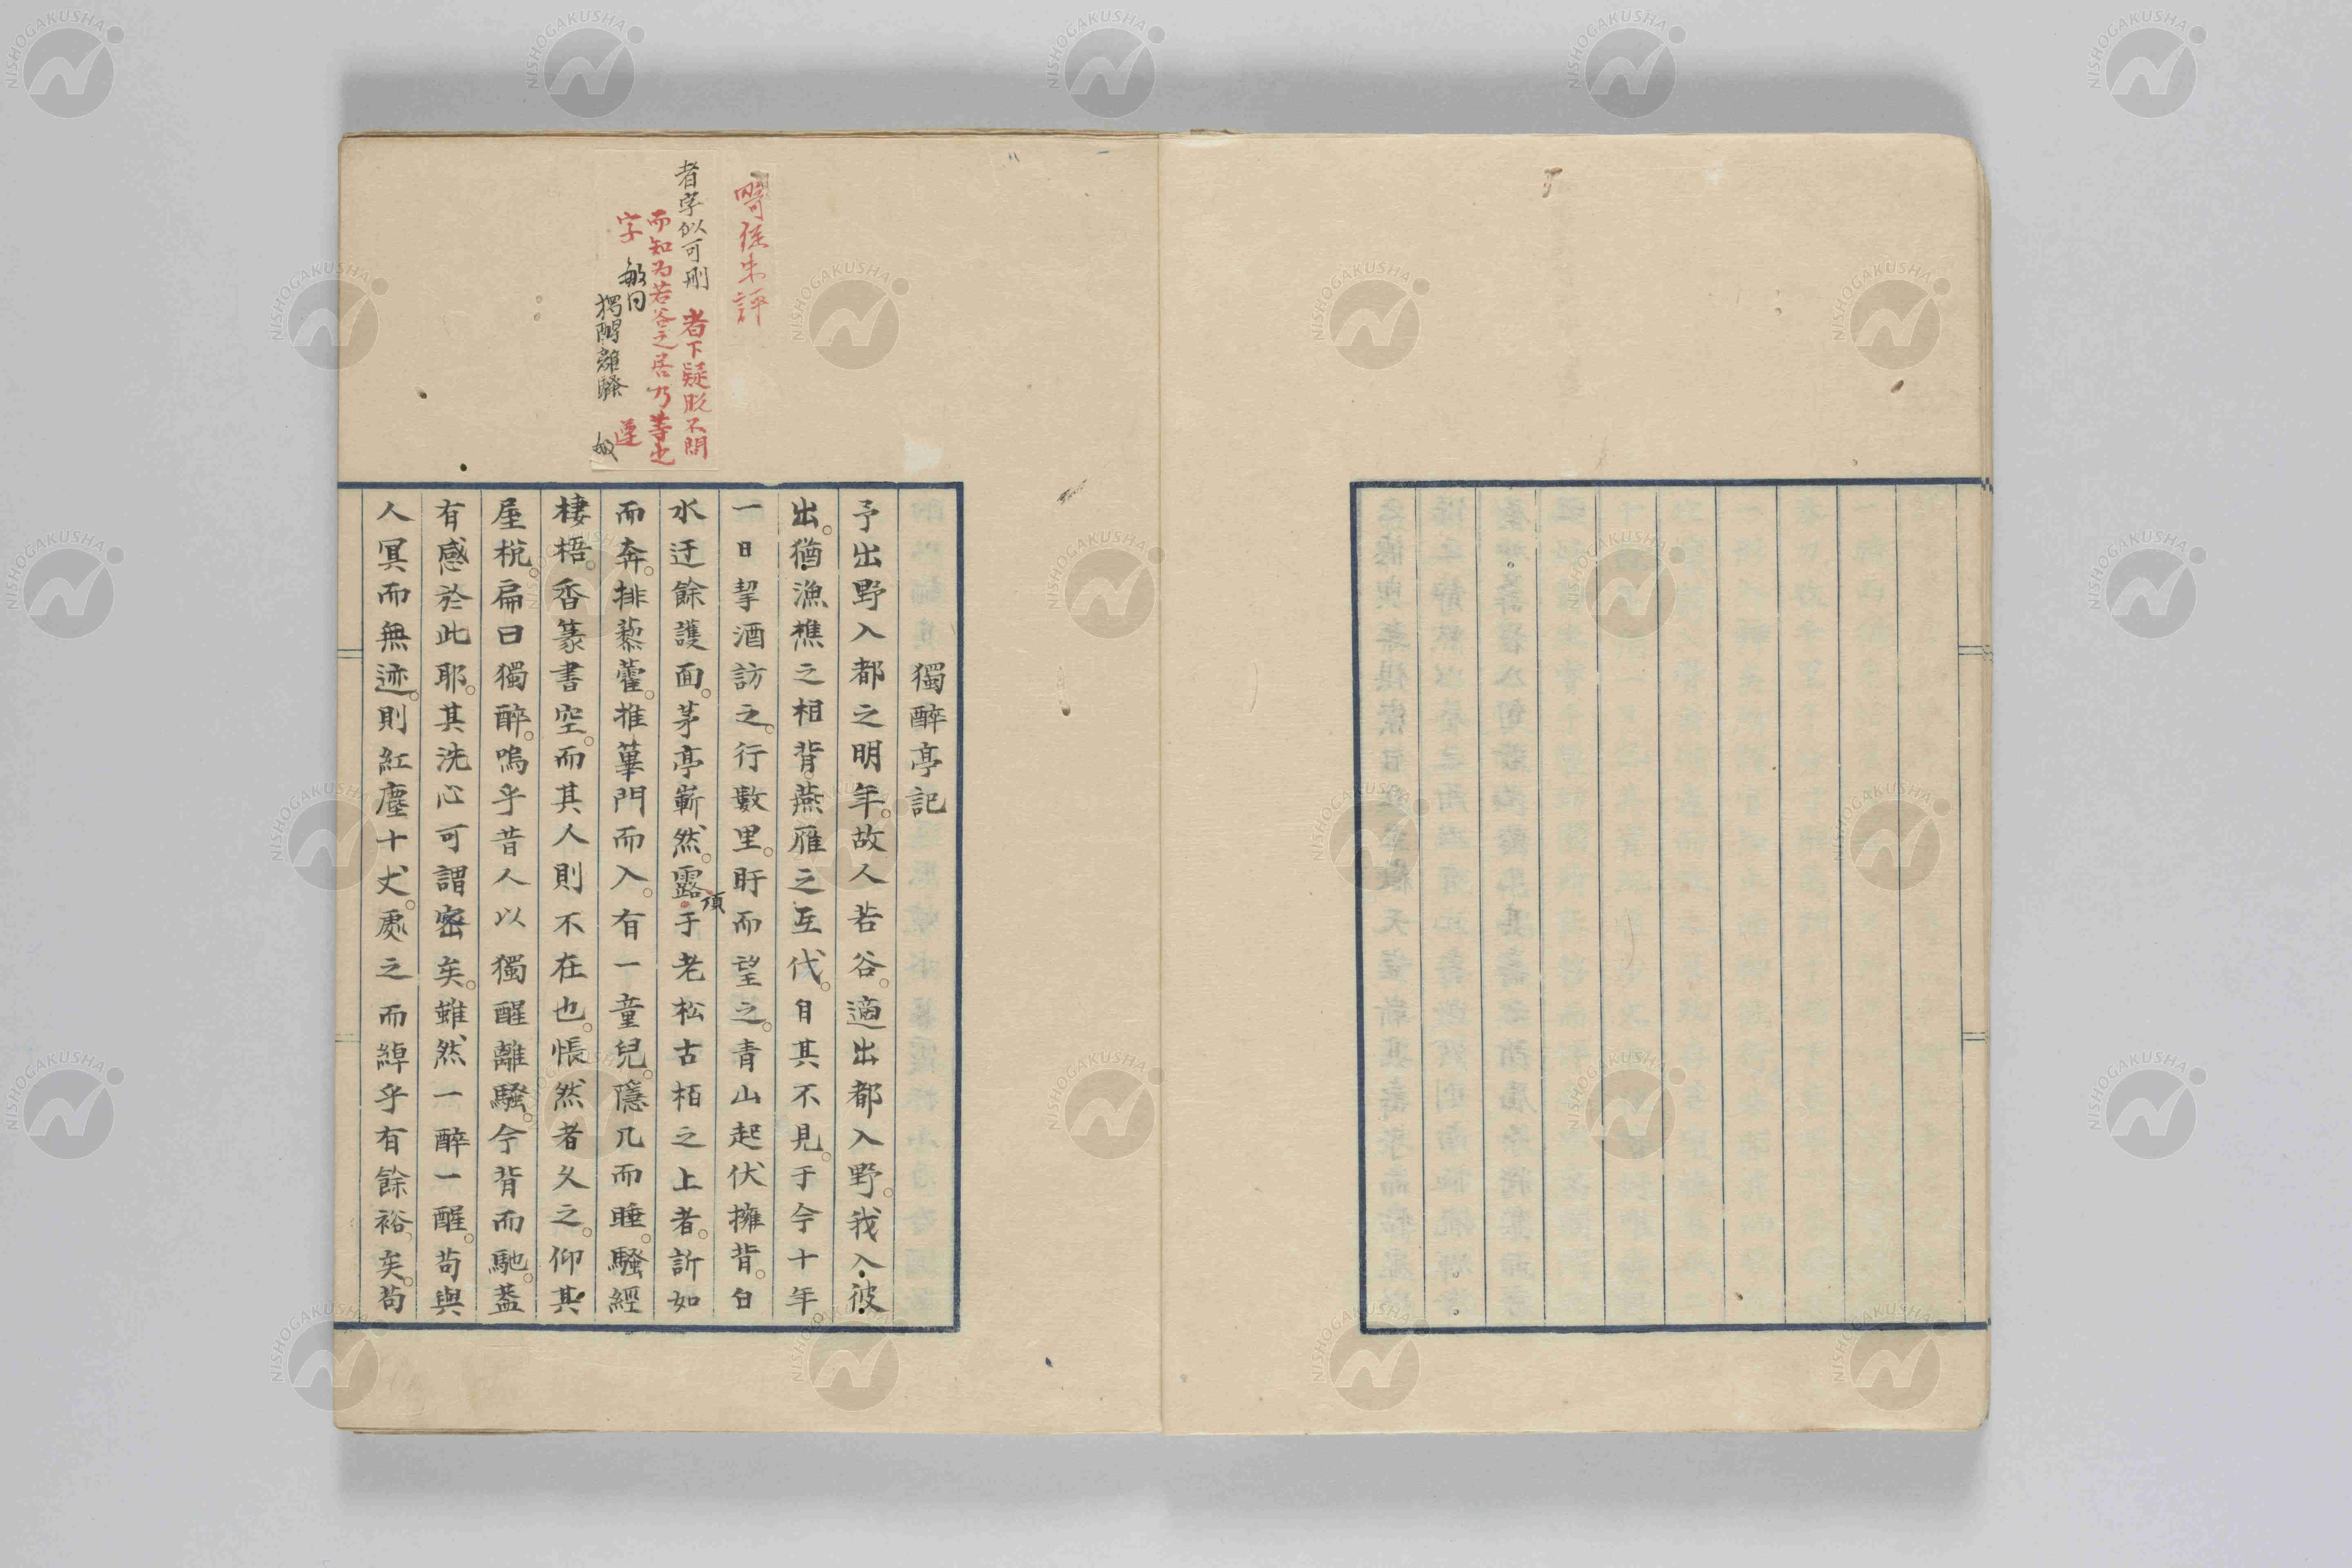 獨醉亭記
予出野入都之明年。故人若谷。適出都入野。我入彼
出。猶漁樵之相背燕雁之互代。自其不見。于今十年
一日挈酒訪之。行數里。盱而望之。青山起伏擁背。白
水迂餘護面。茅亭嶄然。露頂于老松古栢之上者。訢如
而奔。排藜藿。推蓽門而入。有一童兒。隱几而睡。騷經
棲梧。香篆書空。而其人則不在也。悵然者久之。仰其
屋梲。扁曰獨醉。嗚乎昔人以獨醒離騷。今背而馳。蓋
有感於此耶。其洗心可謂密矣。雖然一醉一醒。苟與
人冥而無迹。則紅塵十丈。處之而綽乎有餘裕矣。苟
朱評
者字似可刪
者下疑脫不問
而知為若谷之居乃等也
字 遵
敏曰
獨醒離騷
NISHOGAKUSHA